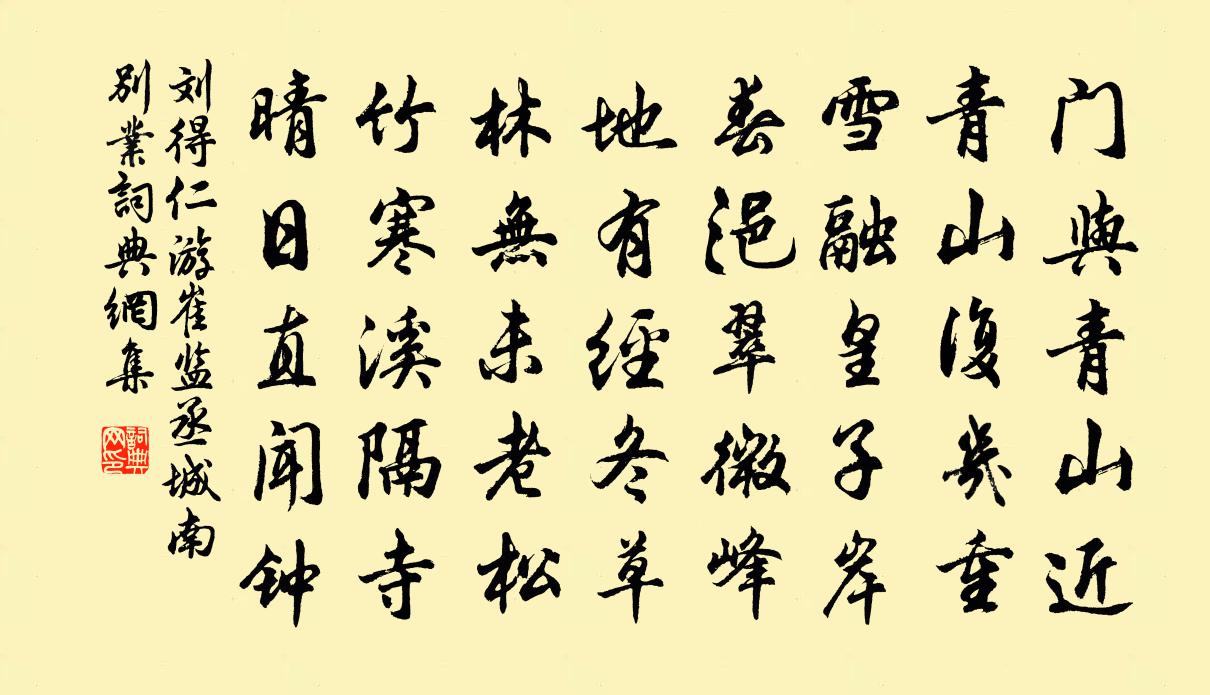 门與青山近
青山復幾重
雪融皇子岸
春浥翠微峰
地有經冬草
林無未老松
竹寒溪隔寺
晴日直闻钟
刘得仁游崔监丞城南
别業詞典網集
詞典网印